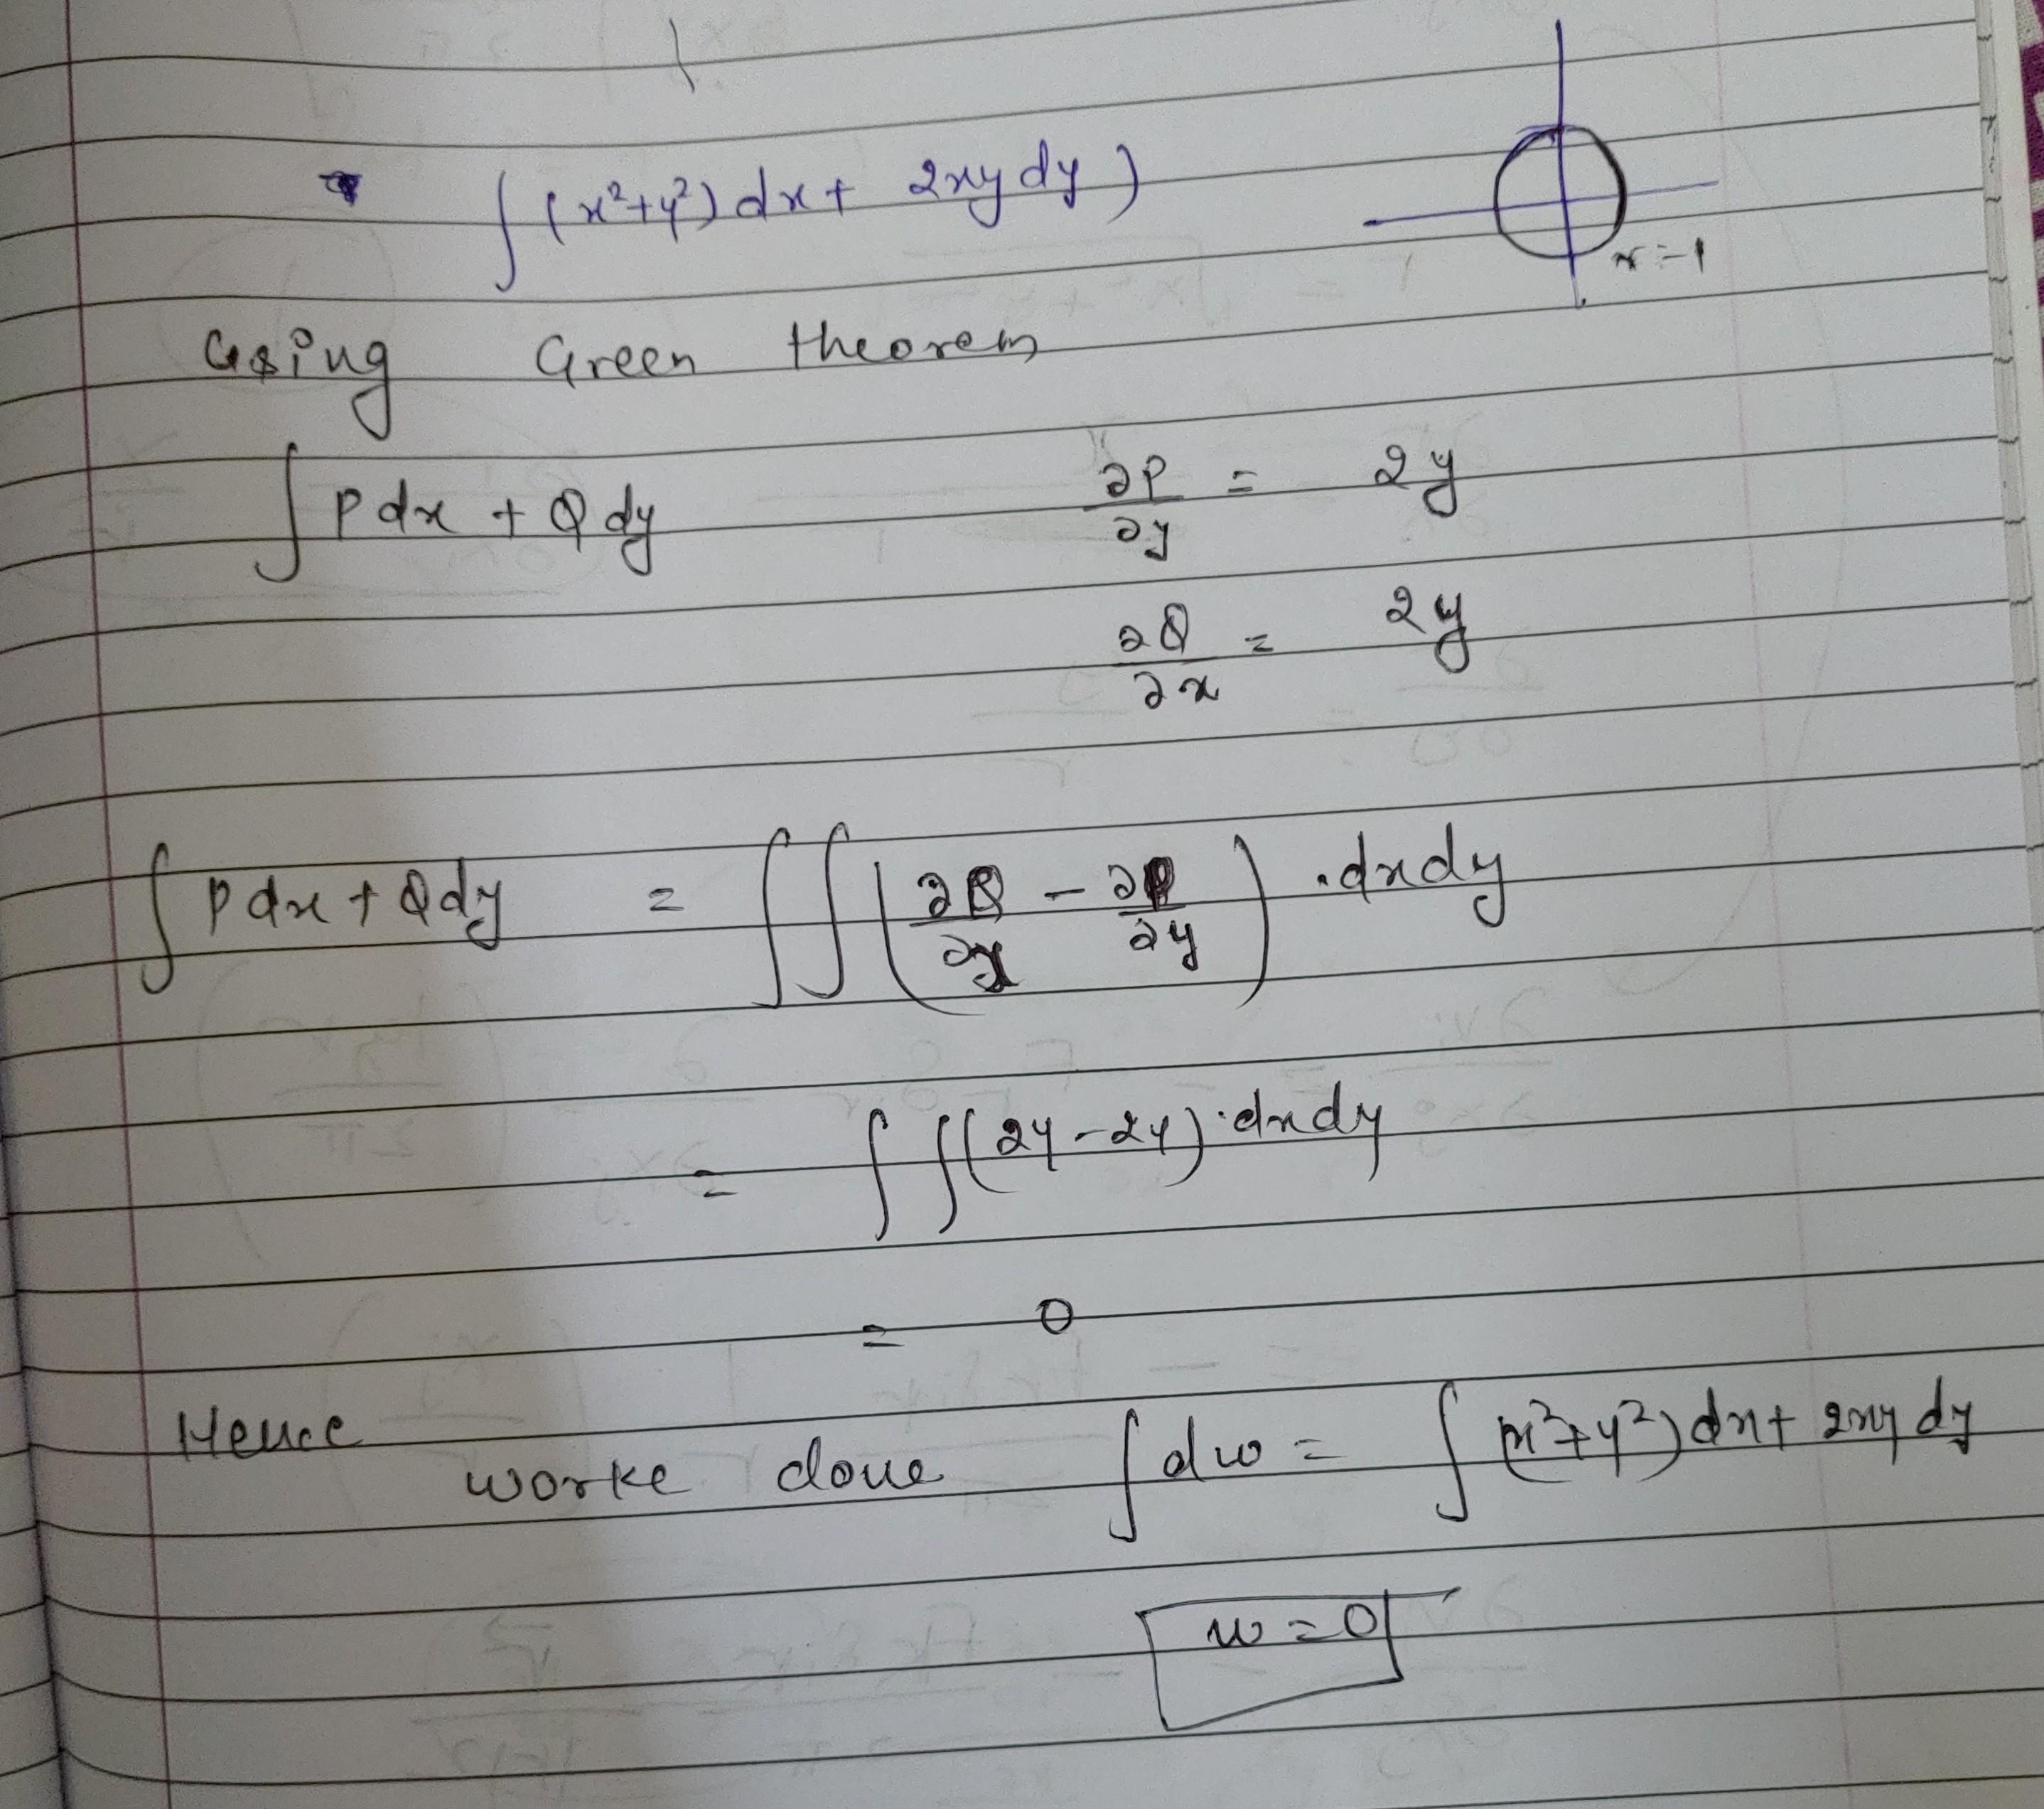 ∫ (x²+y²) dx + 2xy dy )
r=1
Using Green theorem
∫ P dx + Q dy
∂P/∂y = 2y
∂Q/∂x = 2y
∫ P dx + Q dy = ∫∫ ( ∂Q/∂x - ∂P/∂y ) .dxdy
= ∫∫ (2y-2y).dxdy
= 0
Hence
worke done ∫ dw = ∫ (x²+y²) dx + 2xy dy
w=0